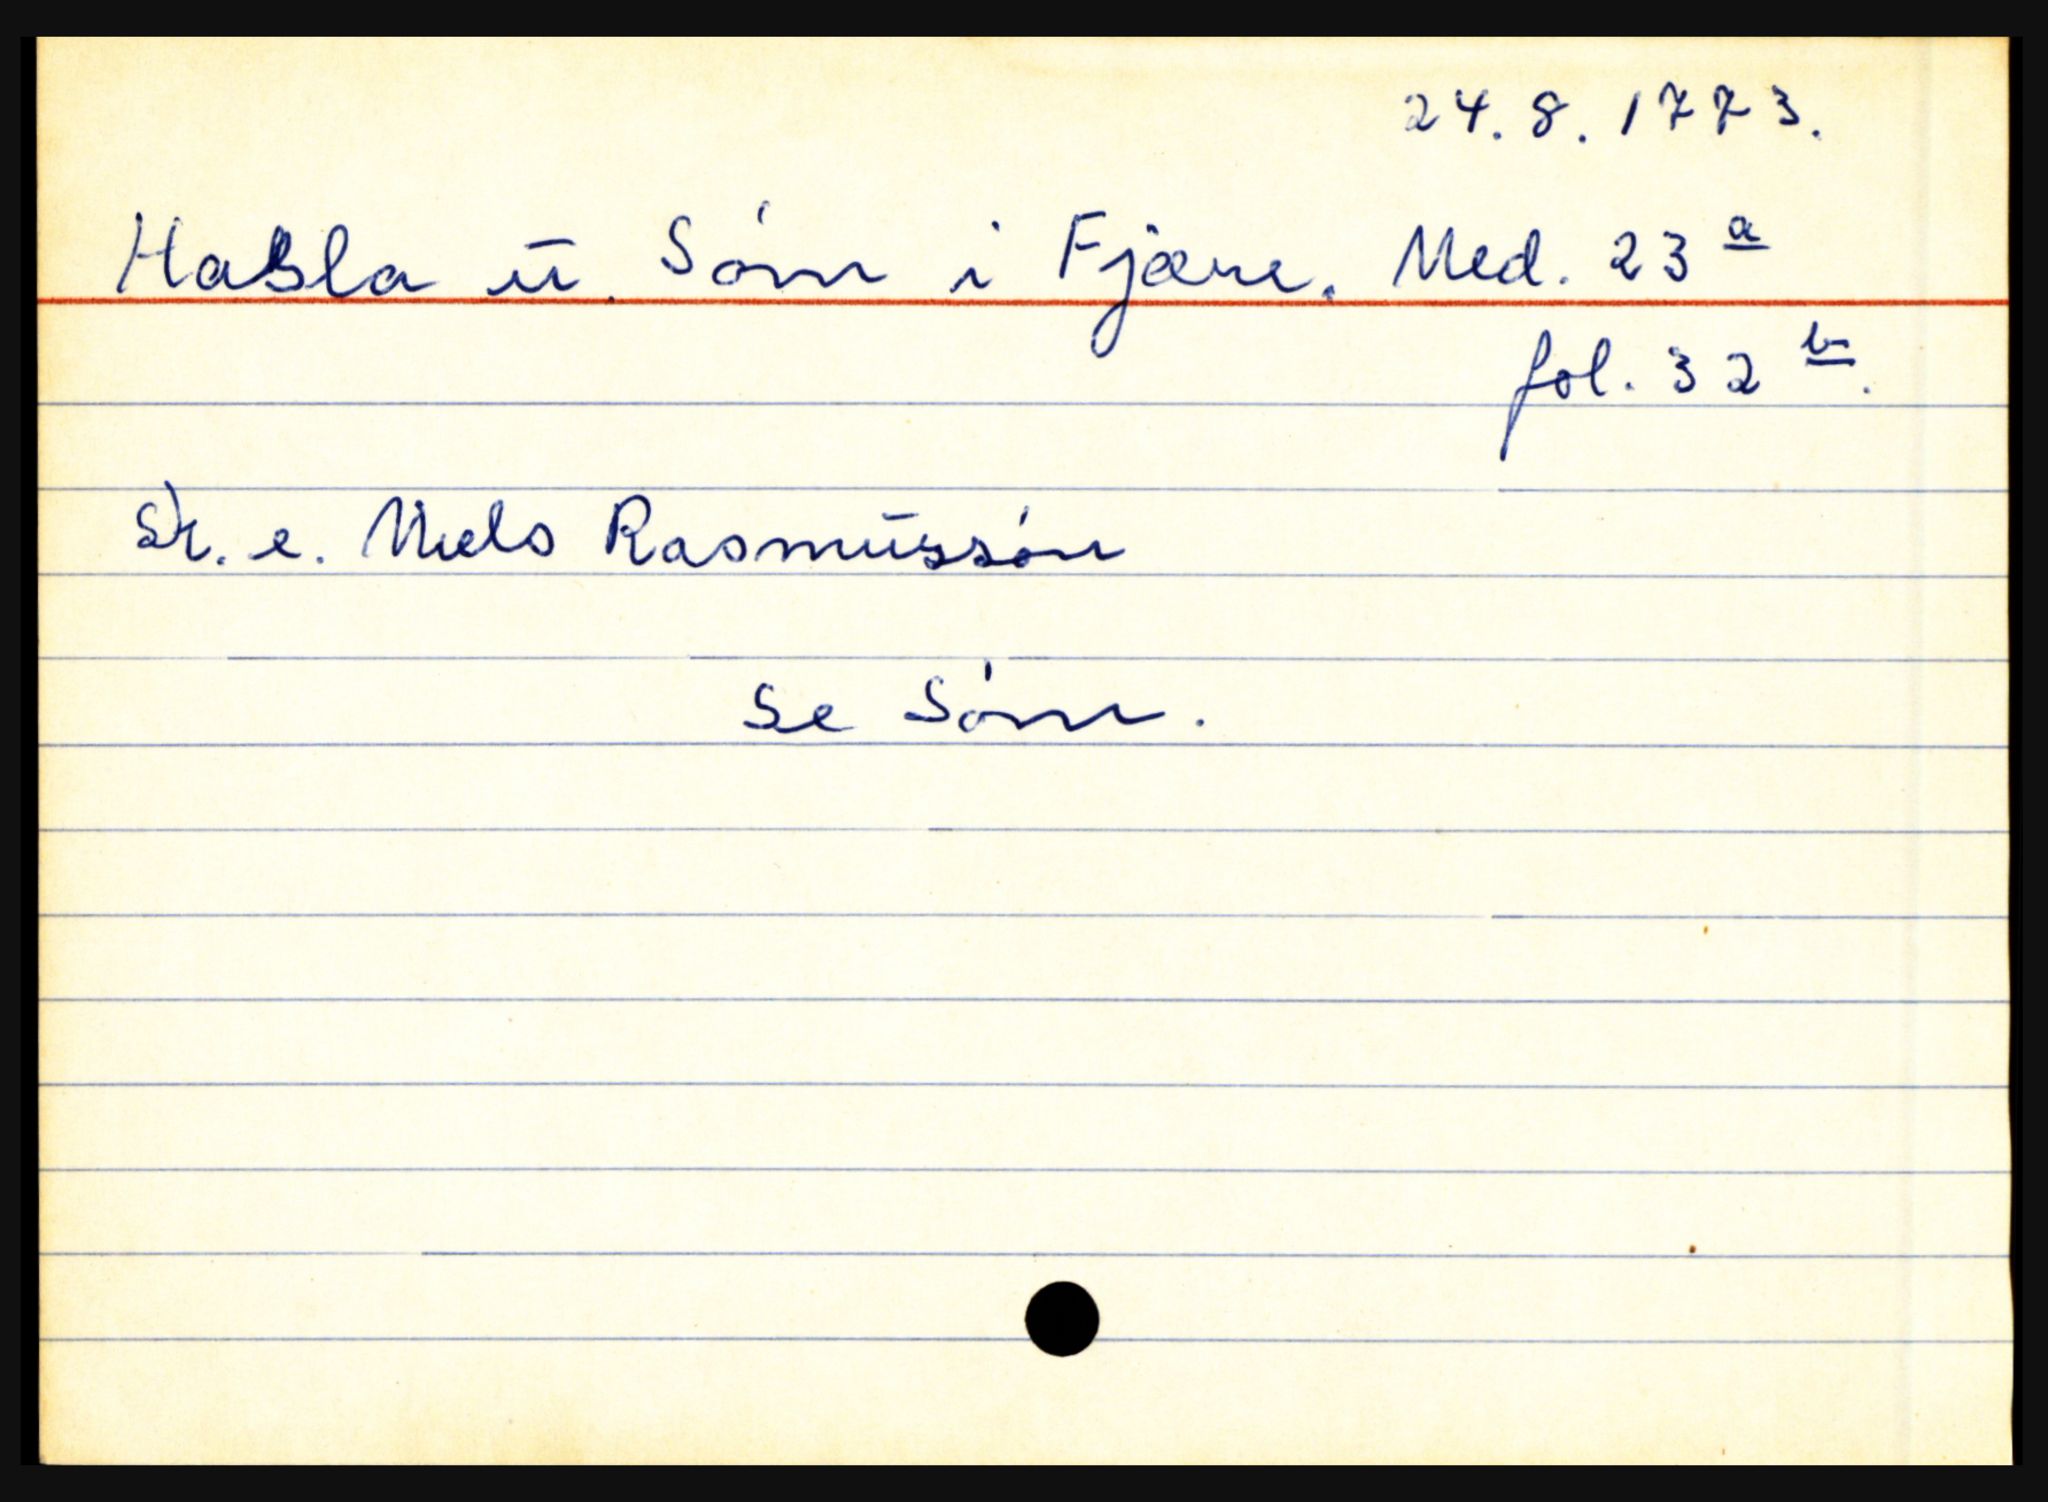 24.8.1773.
Hasla u. Sóm i Fjære. Ned. 23 a
fol. 32 b.
Sk. e. Niels Rasmussón
Se Sóm.